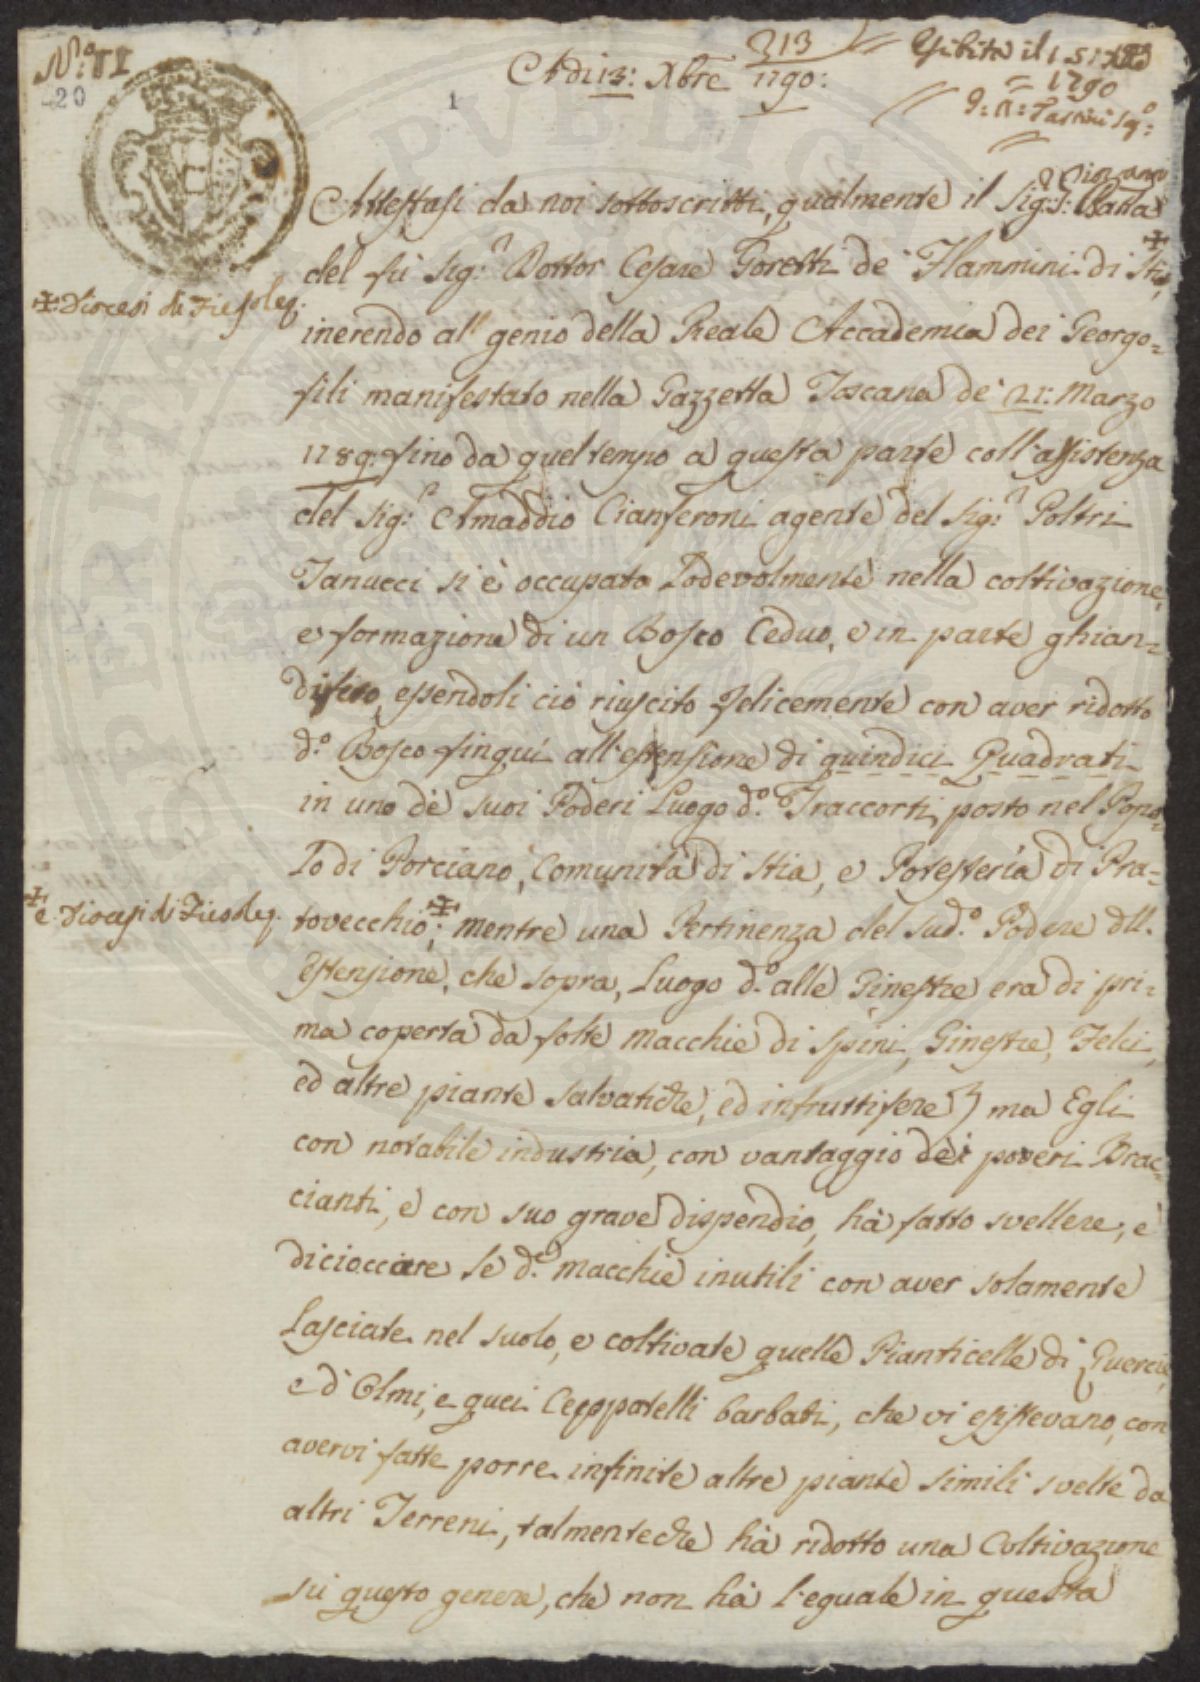 N.° IV
20
313
Adì 13: Xbre 1790:
1
Esibita il 15 Xbre
1790
Attestasi da noi sottoscritti, qualmente il Sig.r Gio: Batta
del fù Sig.r Dottor Cesare Goretti de' Flammini di Stia,
✠ Diocesi di Fiesole
inerendo al genio della Reale Accademia dei Georgo=
fili manifestato nella Gazzetta Toscana de' 21: Marzo
1789. fino da quel tempo a questa parte coll'assistenza
del Sig.r Amaddio Cianferoni agente del Sig.r Poltri
Tanucci si è occupato Lodevolmente nella coltivazione,
e formazione di un Bosco Ceduo, e in parte ghian=
difero, essendoli ciò riuscito felicemente con aver ridotto
d.o Bosco finqui all'estensione di quindici Quadrati
in uno de' suoi Poderi Luogo d.o Traccorti, posto nel Popo=
lo di Porciano, Comunità di Stia, e Potesteria di Pra=
✠ e Diocesi di Fiesole
tovecchio ✠; mentre una Pertinenza del sud.o Podere dll.
Estensione, che sopra, Luogo d.o alle Ginestre era di pri=
ma coperta da folte macchie di spini, Ginestre, Felci,
ed altre piante salvatiche, ed infruttifere; ma Egli
con notabile industria, con vantaggio dei poveri Brac=
cianti, e con suo grave dispendio, hà fatto svellere, e
dicioccare le d.e macchie inutili con aver solamente
Lasciate nel suolo, e coltivate quelle Pianticelle di Querci,
e d'Olmi, e quei Cepparelli barbati, che vi esistevano, con
avervi fatte porre infinite altre piante simili svelte da
altri Terreni, talmenteche hà ridotto una Coltivazione
su questo genere, che non hà l'eguale in questa